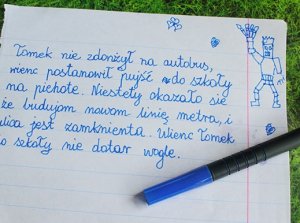 Tomek nie zdonżył na autobus,
wienc postanowił pujść do szkoły
na piehote. Niestety okazało sie
że budujom nowom linię metra, i
ulica jest zamknienta. Wienc Tomek
do szkoły nie dotar wogle.